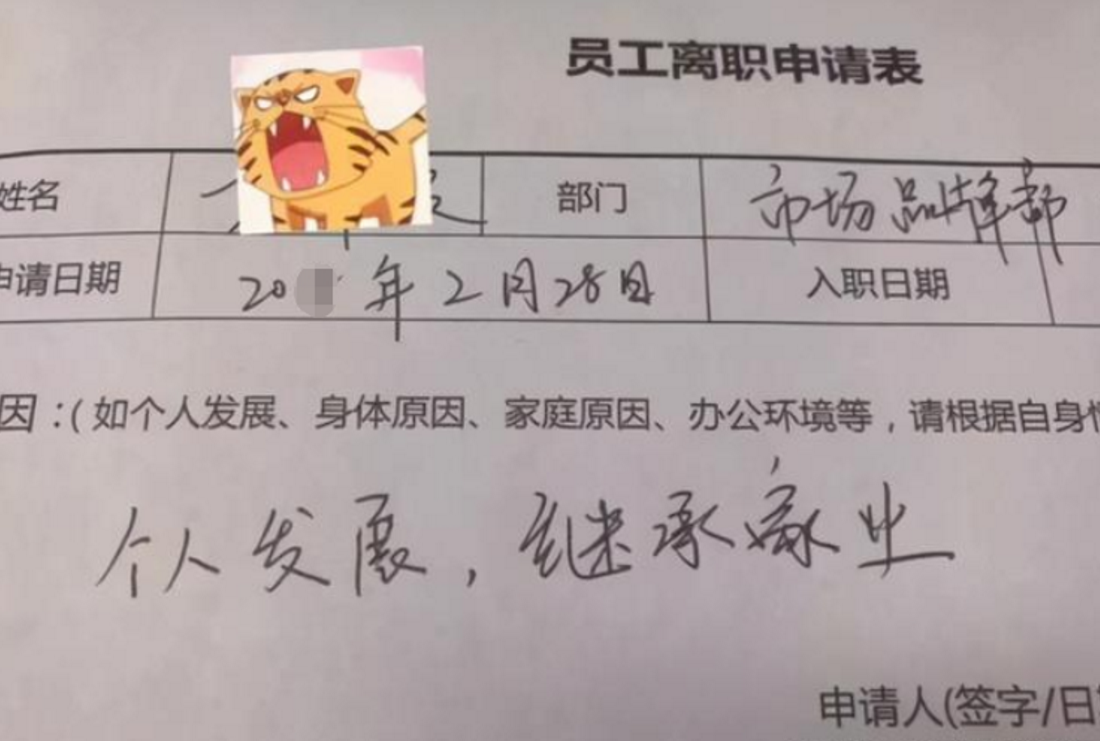 员工离职申请表
姓名 部门 市场品牌部
申请日期 20 年2月28日 入职日期
因:(如个人发展、身体原因、家庭原因、办公环境等,请根据自身情
个人发展,继承家业
申请人(签字/日